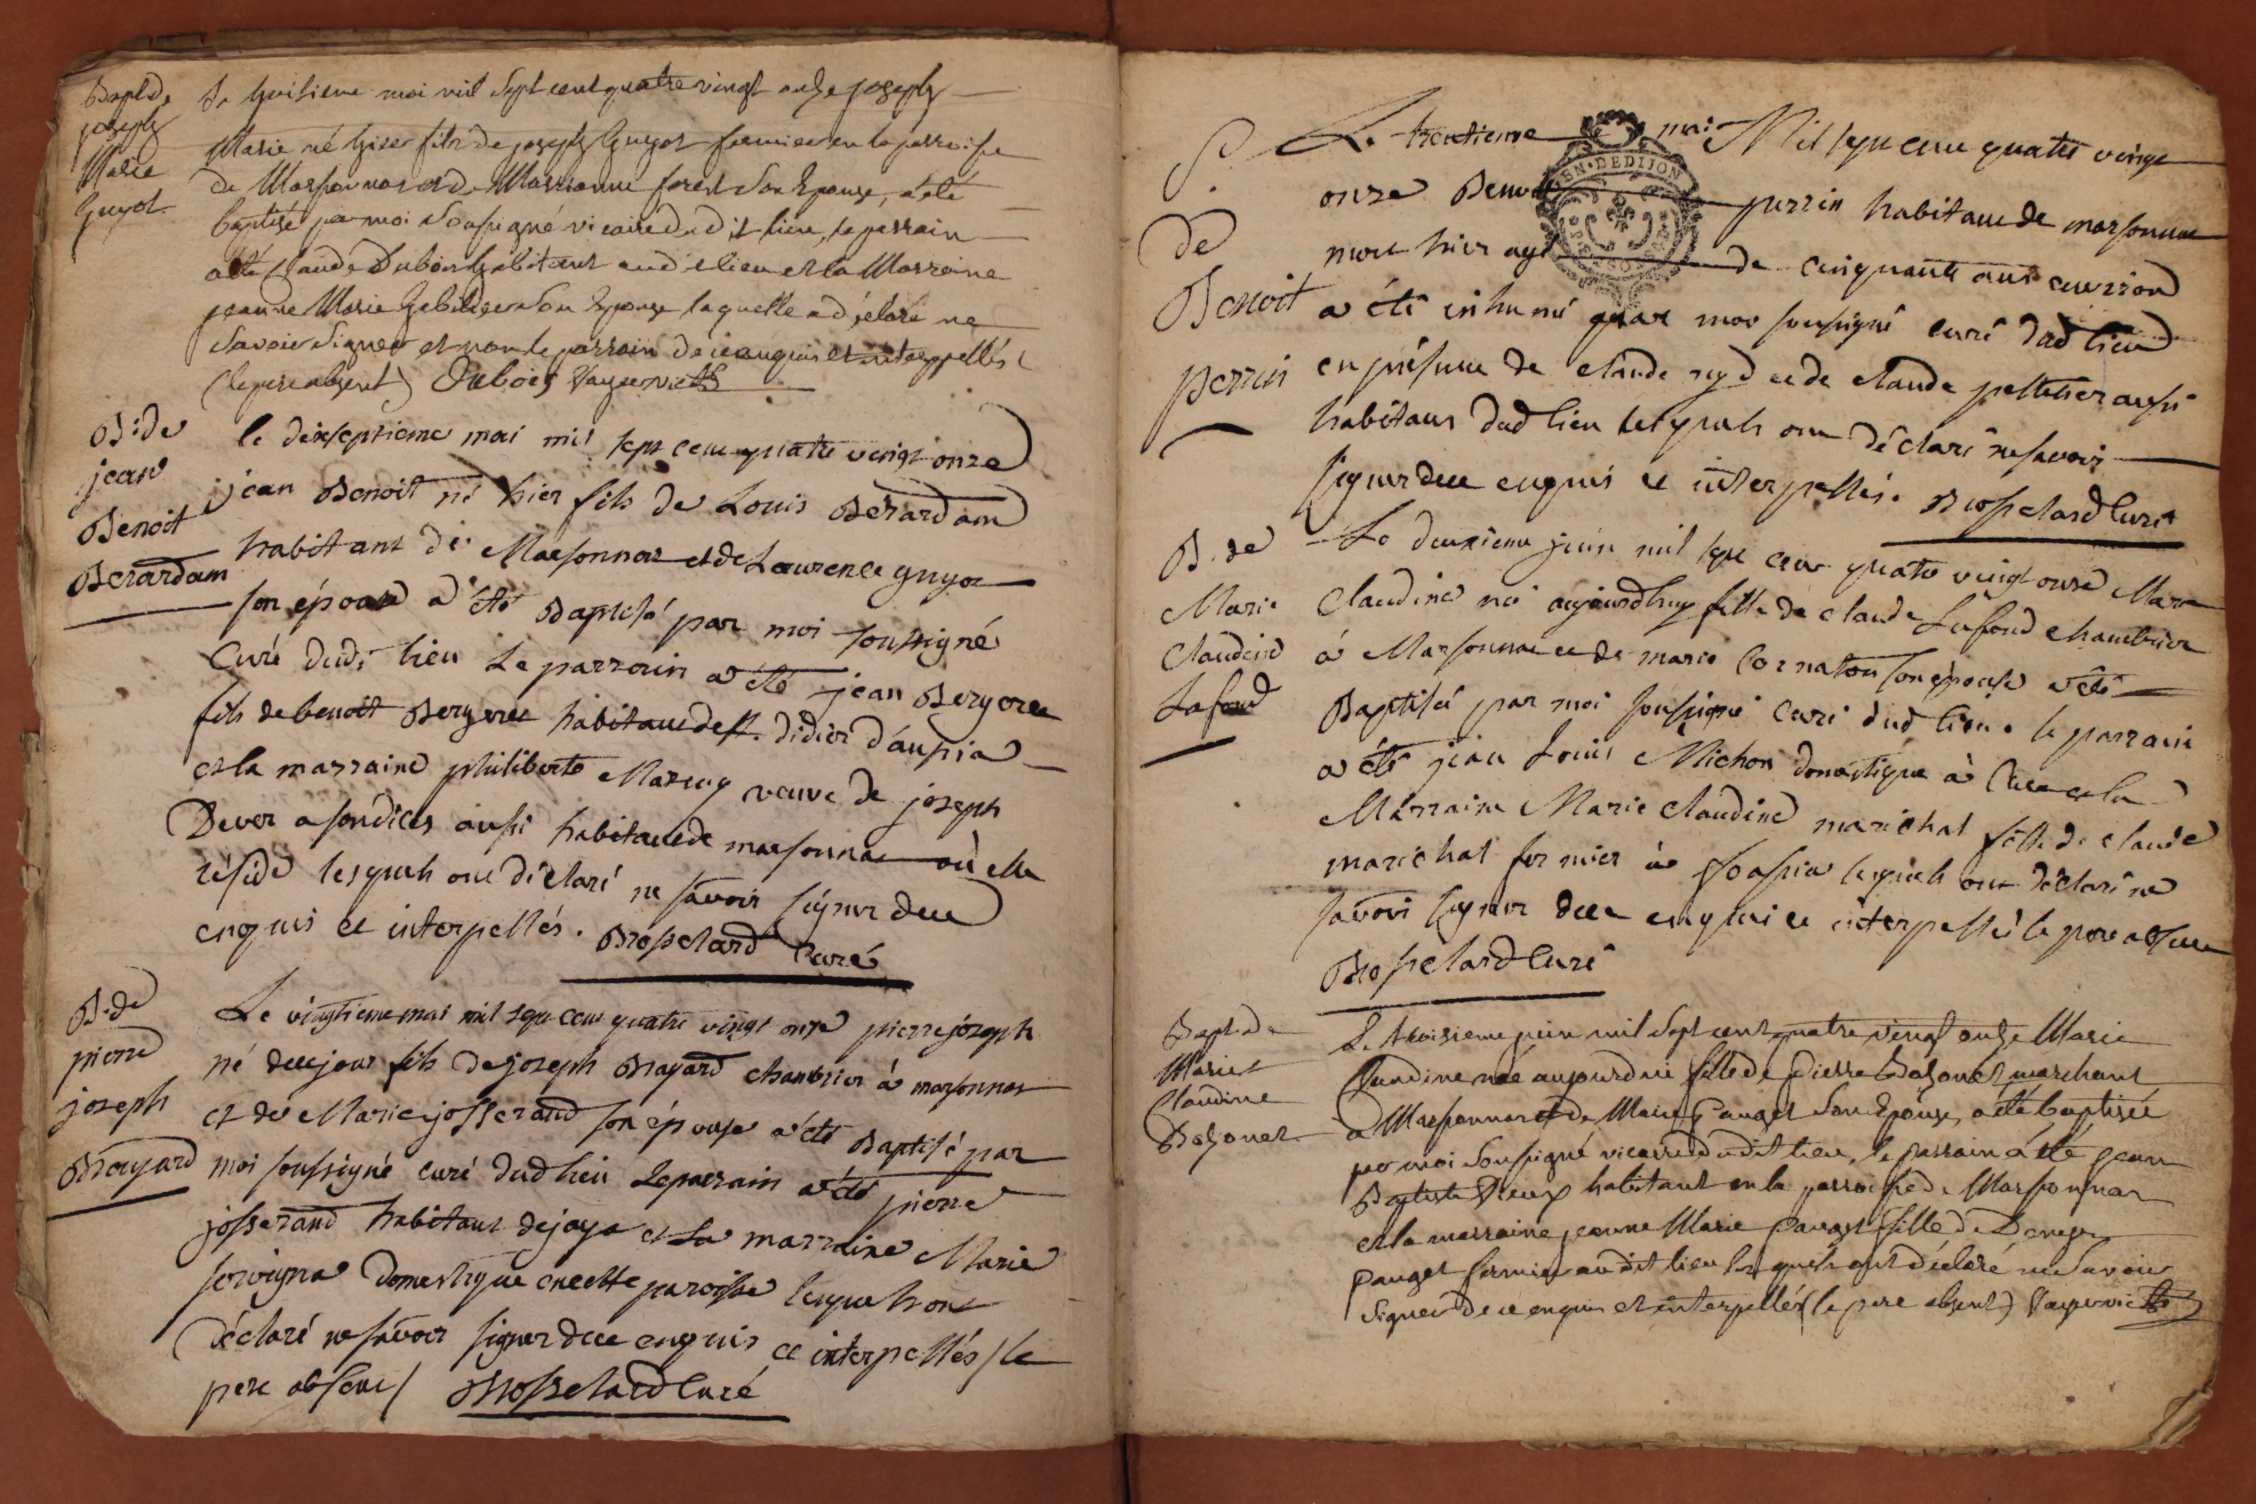 Bapt. de
joseph
Marie
Guyot
Le huitieme mai mil sept cent quatre vingt onze joseph
Marie né hier fils de joseph Guyot fermier en la parroisse
de Marsonnas et de Marianne forest son Epouse, a été
baptisé par moi soussigné vicaire dudit lieu, le parrain
a été Claude Dubois habitant audit lieu et la Marraine
jeanne Marie son Epouse laquelle a déclaré ne
savoir signer et non le parrain de ce enquis et interpellés
(le pere absent) Dubois
B. de
jean
Benoit
Berardam
le dixseptieme mai mil sept cent quatre vingt onze
jean Benoit né hier fils de Louis Berardam
habitant de Marsonnas et de Laurence guyot
son épouse a été Baptisé par moi soussigné
Curé dud. lieu Le parrain a été jean Bergeret
fils de benoit Bergeret habitant de st. didier d'aussia
et la marraine philiberte Marguy veuve de joseph
Dever aussi habitant de marsonnas où elle
réside lesquels ont déclaré ne savoir signer de ce
enquis et interpellés. Brosselard Curé
B. de
pierre
joseph
Brayard
Le vingtieme mai mil sept cent quatre vingt onze pierre joseph
né de ce jour fils de joseph Brayard chambrier à marsonnas
et de Marie josserand son épouse a été Baptisé par
moi soussigné curé dud lieu Le parrain a été pierre
josserand habitant de jaya et La marraine Marie
servigna Domestique en cette paroisse lesquels ont
Déclaré ne savoir signer de ce enquis et interpellés / le
pere absent / Brosselard Curé
S.
de
Benoit
perrin
Le trentieme mai Mil sept cent quatre vingt
onze Benoit perrin habitant de marsonnas
mort hier agé de cinquante ans environ
a été inhumé par moi soussigné curé dud lieu
en présence de claude nyd et de claude pelletier aussi
habitans dud lieu lesquels ont déclaré ne savoir
signer de ce enquis et interpellés. Brosselard Curé
GEN. DE DIJON
B. de
Marie
Claudine
Lafond
Le deuxieme juin mil sept cent quatre vingt onze Marie
Claudine né aujourdhuy fille de claude Lafond chambrier
à Marsonnas et de marie Cornaton son épouse a été
Baptisée par moi soussigné curé dud lieu. le parrain
a été jean Louis Michon domestique à et la
Marraine Marie claudine marichal fille de claude
marichal fermier à foissia lesquels ont déclaré ne
savoir signer de ce enquis et interpellés le pere absent
Brosselard Curé
Bapt. de
Marie
Claudine
Bozonet
Le troisieme juin mil sept cent quatre vingt onze Marie
Claudine née aujourd'hui fille de Pierre Bozonet marchant
à Marsonnas et de Marie Pauget son Epouse, a été baptisée
par moi soussigné vicaire dudit lieu, le parrain a été jean
Baptiste habitant en la parroisse de Marsonnas
et la marraine jeanne Marie Pauget fille de Denys
Pauget fermier audit lieu lesquels ont déclaré ne savoir
signer de ce enquis et interpellés (le pere absent)